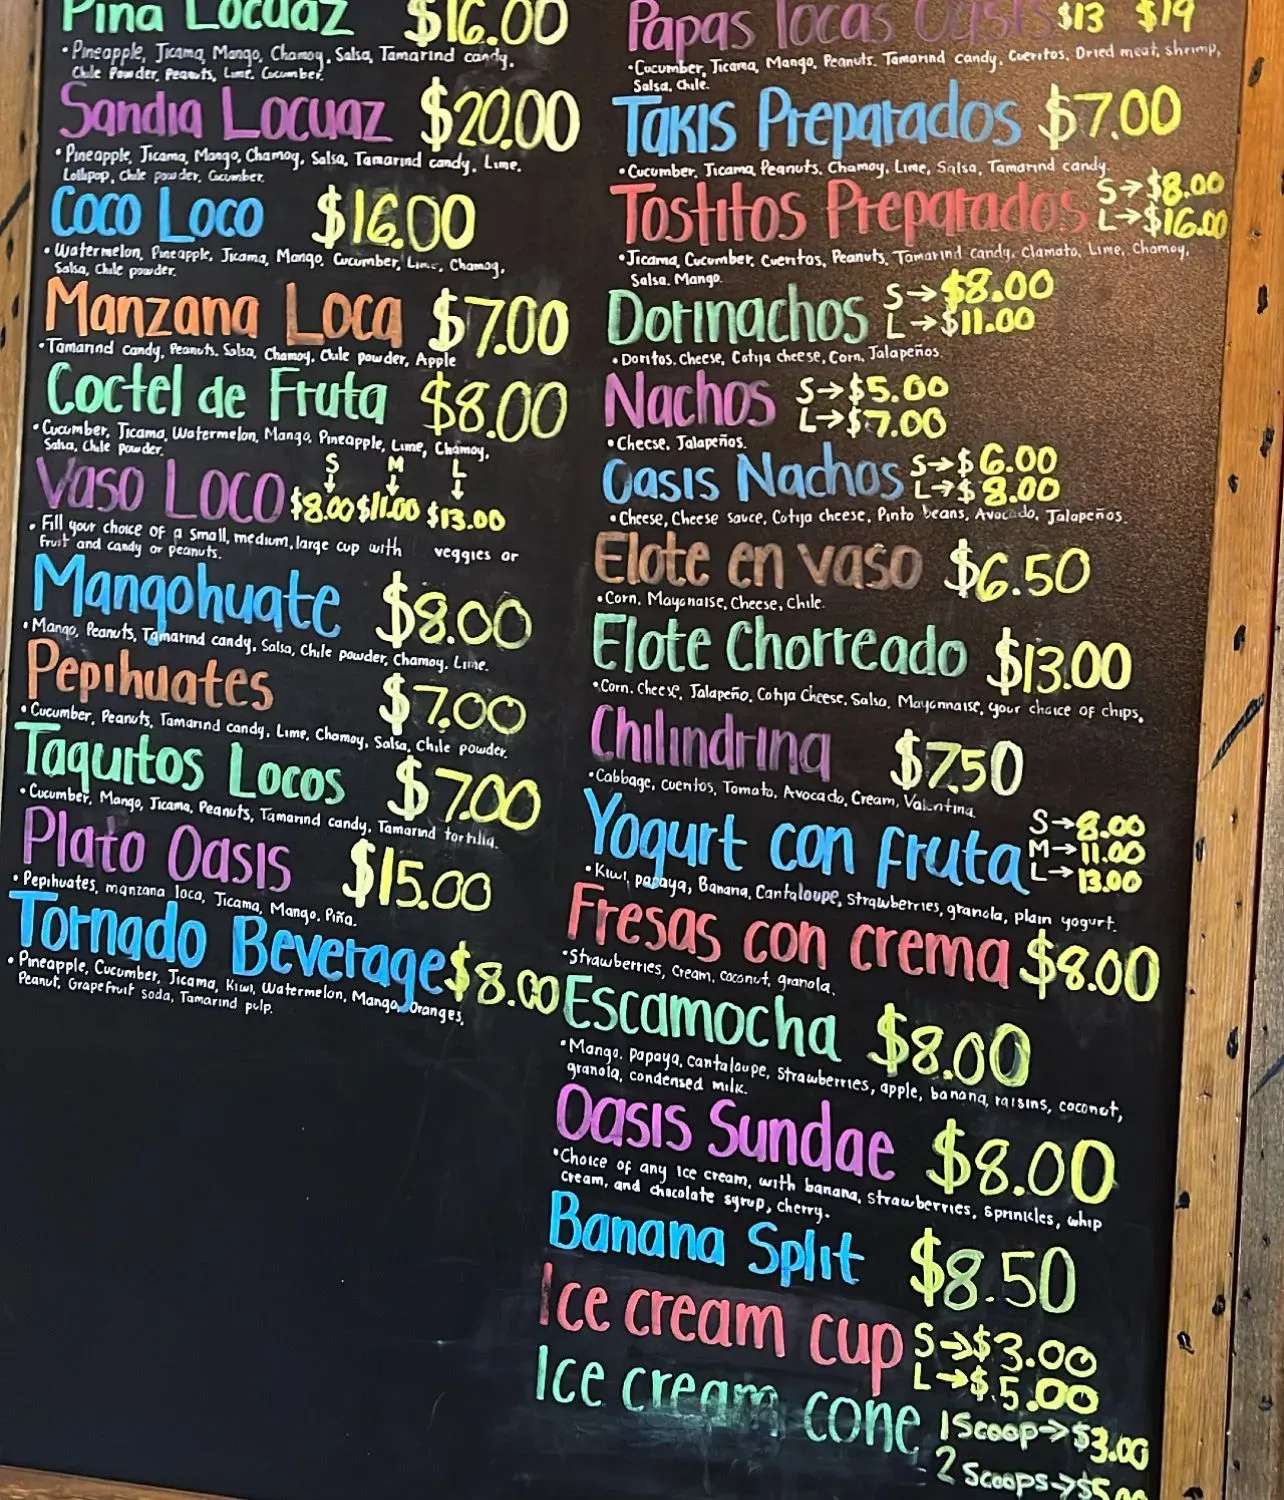 Piña Locuaz $16.00
• Pineapple, Jicama, Mango, Chamoy, Salsa, Tamarind candy,
Chile Powder, Peanuts, Lime, Cucumber.
Sandia Locuaz $20.00
• Pineapple, Jicama, Mango, Chamoy, Salsa, Tamarind candy, Lime,
Lollipop, Chile powder, Cucumber.
Coco Loco $16.00
• Watermelon, Pineapple, Jicama, Mango, Cucumber, Lime, Chamoy,
Salsa, Chile powder.
Manzana Loca $7.00
• Tamarind candy, Peanuts, Salsa, Chamoy, Chile powder, Apple
Coctel de Fruta $8.00
• Cucumber, Jicama, Watermelon, Mango, Pineapple, Lime, Chamoy,
Salsa, Chile Powder.
S M L
Vaso Loco $8.00 $11.00 $13.00
• Fill your choice of a small, medium, large cup with veggies or
Fruit and candy or peanuts.
Mangohuate $8.00
• Mango, Peanuts, Tamarind candy, Salsa, Chile powder, Chamoy, Lime.
Pepihuates $7.00
• Cucumber, Peanuts, Tamarind candy, Lime, Chamoy, Salsa, Chile powder.
Taquitos Locos $7.00
• Cucumber, Mango, Jicama, Peanuts, Tamarind candy, Tamarind tortilla.
Plato Oasis $15.00
• Pepihuates, manzana loca, Jicama, Mango, Piña.
Tornado Beverage $8.00
• Pineapple, Cucumber, Jicama, Kiwi, Watermelon, Mango, Oranges,
Peanut, Grapefruit soda, Tamarind pulp.
Papas locas Oasis $13 $19
• Cucumber, Jicama, Mango, Peanuts, Tamarind candy, Cueritos, Dried meat, shrimp,
Salsa, Chile.
Takis Preparados $7.00
• Cucumber, Jicama, Peanuts, Chamoy, Lime, Salsa, Tamarind candy.
Tostitos Preparados S→$8.00
L→$16.00
• Jicama, Cucumber, Cueritos, Peanuts, Tamarind candy, Clamato, Lime, Chamoy,
Salsa, Mango.
Dorinachos S→$8.00
L→$11.00
• Doritos, Cheese, Cotija cheese, Corn, Jalapeños.
Nachos S→$5.00
L→$7.00
• Cheese, Jalapeños.
Oasis Nachos S→$6.00
L→$8.00
• Cheese, Cheese sauce, Cotija cheese, Pinto beans, Avocado, Jalapeños.
Elote en vaso $6.50
• Corn, Mayonaise, Cheese, Chile.
Elote Chorreado $13.00
• Corn, Cheese, Jalapeño, Cotija Cheese, Salsa, Mayonnaise, your choice of chips.
Chilindrina $7.50
• Cabbage, cueritos, Tomato, Avocado, Cream, Valentina.
Yogurt con fruta S→8.00
M→11.00
L→13.00
• Kiwi, papaya, Banana, Cantaloupe, strawberries, granola, plain yogurt.
Fresas con crema $8.00
• Strawberries, cream, coconut, granola.
Escamocha $8.00
• Mango, papaya, cantaloupe, strawberries, apple, banana, raisins, coconut,
granola, condensed milk.
Oasis Sundae $8.00
• Choice of any ice cream, with banana, strawberries, sprinkles, whip
cream, and chocolate syrup, cherry.
Banana Split $8.50
Ice cream cup S→$3.00
L→$5.00
Ice cream cone 1 Scoop→$3.00
2 Scoops→$5.00